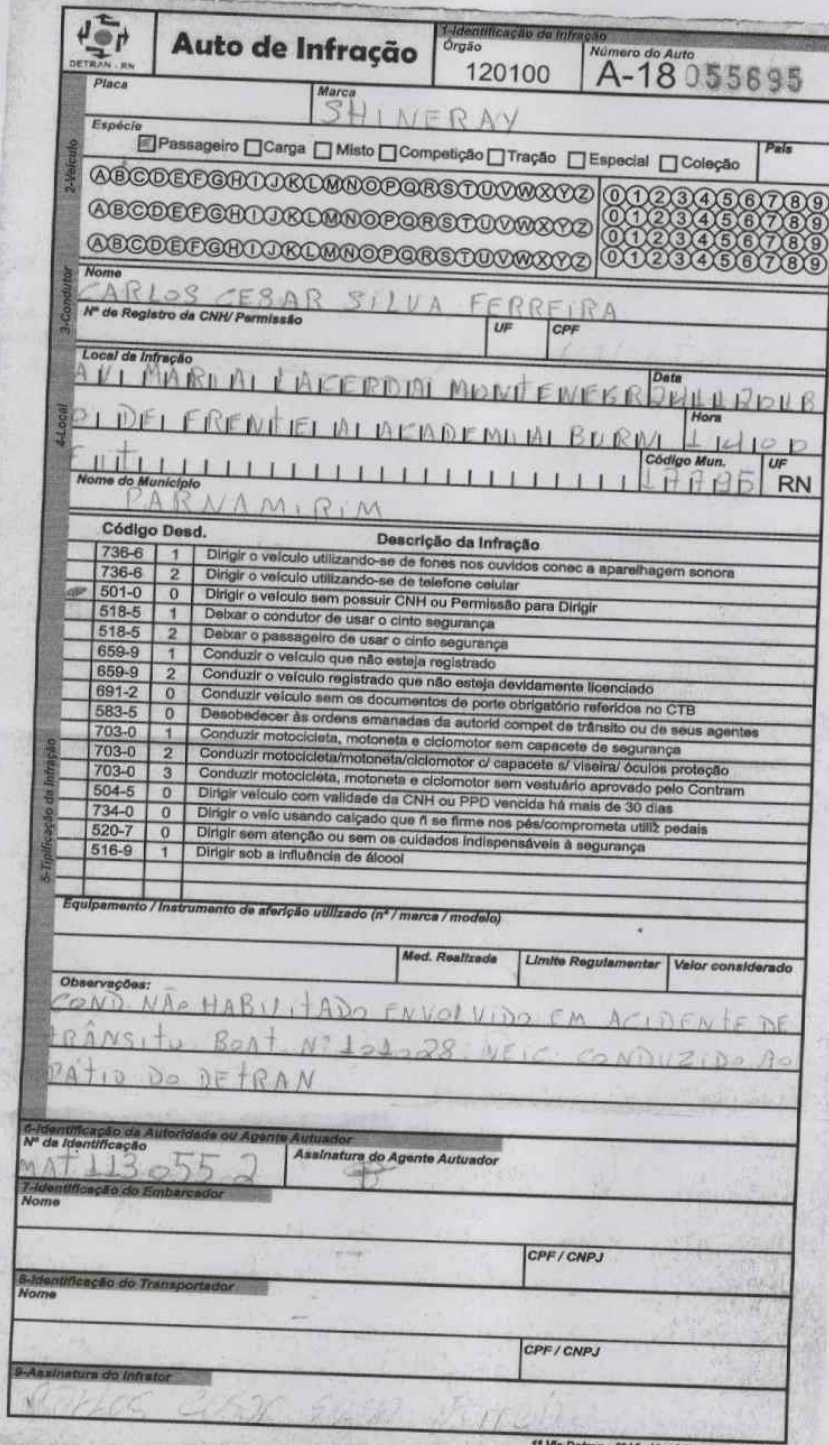 DETRAN - RN
Auto de Infração
1-Identificação da Infração
Órgão
120100
Número do Auto
A-18 055695
2-Veículo
Placa
Marca
SHINERAY
Espécie
Passageiro Carga Misto Competição Tração Especial Coleção
País
A B C D E F G H I J K L M N O P Q R S T U V W X Y Z 0 1 2 3 4 5 6 7 8 9
A B C D E F G H I J K L M N O P Q R S T U V W X Y Z 0 1 2 3 4 5 6 7 8 9
A B C D E F G H I J K L M N O P Q R S T U V W X Y Z 0 1 2 3 4 5 6 7 8 9
0 1 2 3 4 5 6 7 8 9
3-Condutor
Nome
CARLOS CESAR SILVA FERREIRA
Nº de Registro da CNH/ Permissão
UF
CPF
4-Local
Local da Infração
Data
AV MARIA LACERDA MONTENEGR
Hora
O DE FRENTE A ACADEMIA BURN 1400
FIT
Código Mun.
UF
RN
Nome do Município
PARNAMIRIM
5-Tipificação da Infração
Código Desd. Descrição da Infração
736-6 1 Dirigir o veículo utilizando-se de fones nos ouvidos conec a aparelhagem sonora
736-6 2 Dirigir o veículo utilizando-se de telefone celular
501-0 0 Dirigir o veículo sem possuir CNH ou Permissão para Dirigir
518-5 1 Deixar o condutor de usar o cinto segurança
518-5 2 Deixar o passageiro de usar o cinto segurança
659-9 1 Conduzir o veículo que não esteja registrado
659-9 2 Conduzir o veículo registrado que não esteja devidamente licenciado
691-2 0 Conduzir veículo sem os documentos de porte obrigatório referidos no CTB
583-5 0 Desobedecer às ordens emanadas da autorid compet de trânsito ou de seus agentes
703-0 1 Conduzir motocicleta, motoneta e ciclomotor sem capacete de segurança
703-0 2 Conduzir motocicleta/motoneta/ciclomotor c/ capacete s/ viseira/ óculos proteção
703-0 3 Conduzir motocicleta, motoneta e ciclomotor sem vestuário aprovado pelo Contram
504-5 0 Dirigir veículo com validade da CNH ou PPD vencida há mais de 30 dias
734-0 0 Dirigir o veíc usando calçado que ñ se firme nos pés/comprometa utiliz pedais
520-7 0 Dirigir sem atenção ou sem os cuidados indispensáveis à segurança
516-9 1 Dirigir sob a influência de álcool
Equipamento / Instrumento de aferição utilizado (nº / marca / modelo)
Med. Realizada
Limite Regulamentar
Valor considerado
Observações:
COND. NÃO HABILITADO ENVOLVIDO EM ACIDENTE DE
TRÂNSITO BOAT Nº 101028. VEIC. CONDUZIDO AO
PÁTIO DO DETRAN
6-Identificação da Autoridade ou Agente Autuador
Nº da Identificação
Assinatura do Agente Autuador
MAT 113.055 2
7-Identificação do Embarcador
Nome
CPF / CNPJ
8-Identificação do Transportador
Nome
CPF / CNPJ
9-Assinatura do Infrator
Carlos Cesar Silva Ferreira